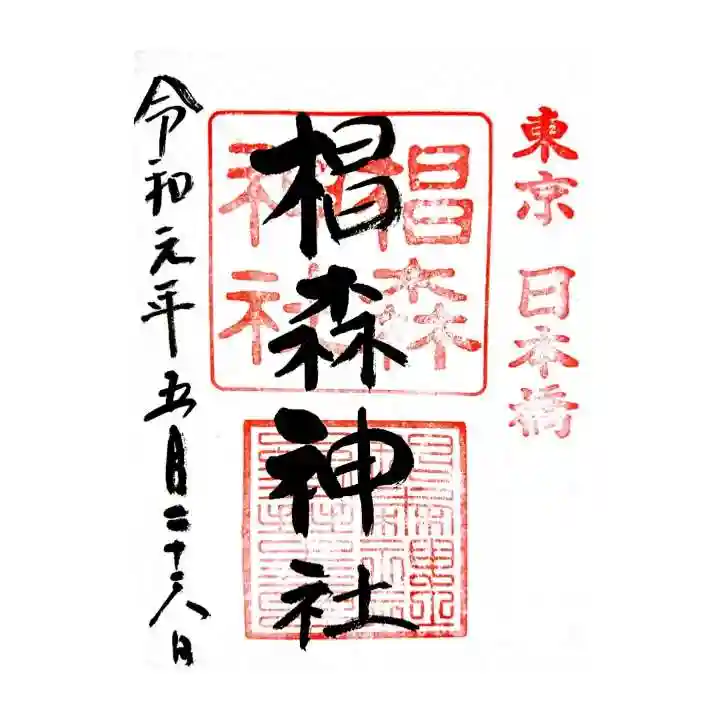 東京 日本橋
椙森神社
椙森
神社
令和元年五月二十八日